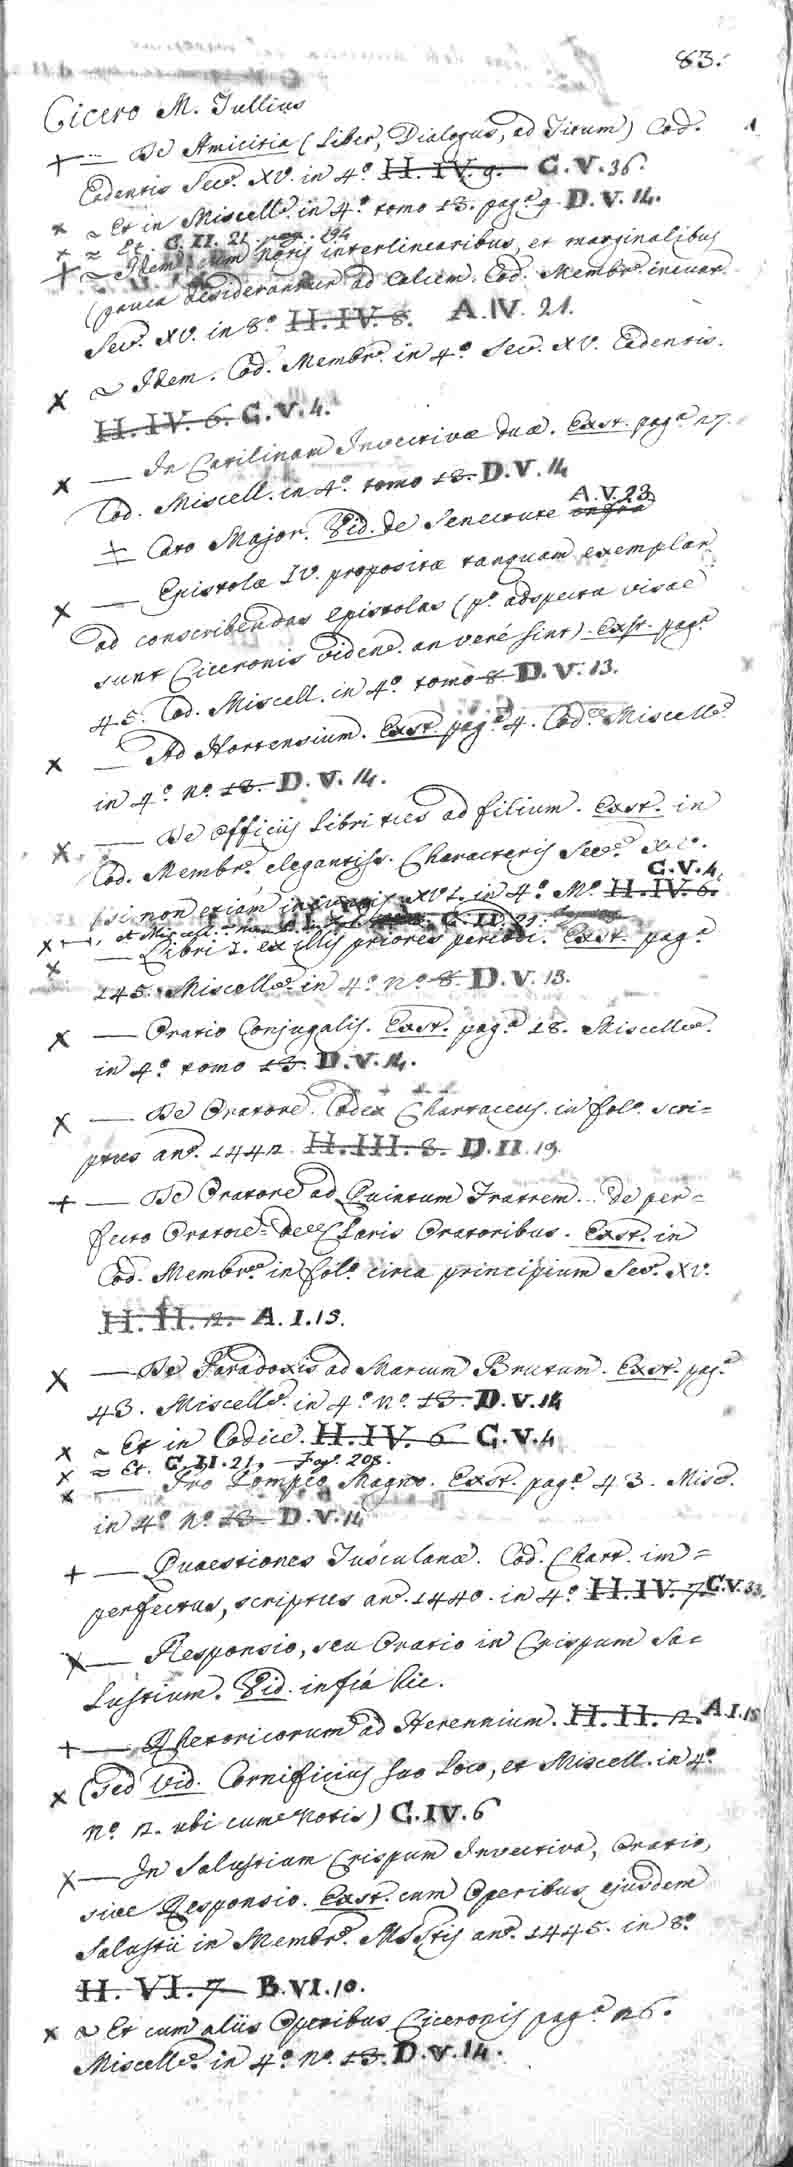 83.
Cicero M. Tullius
+ — De Amicitia (Liber, Dialogus, ad Titum) Cod.
Eadentis Sec.º XV. in 4.º H. IV. 9. C.V. 36.
x ~ Et in Miscell.º in 4.º tomo 13. pag.ª 9. D.V. 14.
x ≈ Et. C. II. 21. pag. 194
+ ~ Idem, cum Notis interlinearibus, et marginalibus
(pauca desiderantur ad calcem. Cod. Membr.º ineunt.
Sec.º XV. in 8.º H. IV. 8. A. IV. 21.
x ~ Idem. Cod. Membr.º in 4.º Sec.º XV. Eadentis.
H. IV. 6. C.V. 4.
x — In Catilinam Invectivæ duæ. Exst. pag.ª 27.
Cod. Miscell. in 4.º tomo 13. D.V. 14
+ Cato Major. Vid. de Senectute infra A.V. 23
x — Epistolæ IV. propositæ tanquam exemplar
ad conscribendas epistolas (p.º adspectu visae
sunt Ciceronis viden.º an veré sint). Exst. pag.ª
45. Cod. Miscell. in 4.º tomo 8 D.V. 13.
x — Ad Hortensium. Exst. pag.ª 4. Cod.º Miscell.º
in 4.º n.º 13. D.V. 14.
x — De Officiis Libri tres ad filium. Exst. in
Cod. Membr.º elegantiss. Characteris Sec.º XV.
(si non etiam ineuntis XVI. in 4.º M.º H. IV. 6. C.V. 4
x — Et Miscell. C. II. 21.
x — Libri I. ex illis priores periodi. Exst. pag.ª
145. Miscell.º in 4.º n.º 8. D.V. 13.
x — Oratio Conjugalis. Exst. pag.ª 18. Miscell.º
in 4.º tomo 13. D.V. 14.
x — De Oratore. Codex Chartaceus. in fol.º scri=
ptus an.º 1442. H. III. 8. D. II. 19.
+ — De Oratore ad Quintum Fratrem... de per=
fecto Oratore = de Claris Oratoribus. Exst. in
Cod. Membr.º in fol.º circa principium Sec.º XV.
H. II. 12. A. I. 15.
x — De Paradoxis ad Marcum Brutum. Exst. pag.ª
43. Miscell.º in 4.º n.º 13. D.V. 14
x ~ Et in Codice. H. IV. 6 C.V. 4
x ≈ Et. C. II. 21. — Pag. 208.
x — Pro Pompeo Magno. Exst. pag.ª 43. Misc.
in 4.º n.º 13. D.V. 14
+ — Quaestiones Tusculanæ. Cod. Chart. im=
perfectus, scriptus an.º 1440. in 4.º H. IV. 7. C.V. 33.
x — Responsio, seu Oratio in Crispum Sa=
lustium. Vid. infrá hic.
+ — Rhetoricorum ad Herennium. H. II. 12. A. I. 15
x (sed Vid. Cornificius suo loco, et Miscell. in 4.º
n.º 12. ubi cum Notis) C. IV. 6
x — In Salustium Crispum Invectiva, Oratio,
sive Responsio. Exst. cum Operibus ejusdem
Salustii in Membr.º MSStis an.º 1445. in 8.º
H. VI. 7 B. VI. 10.
x ~ Et cum aliis Operibus Ciceronis pag.ª 26.
Miscell.º in 4.º n.º 13. D.V. 14.